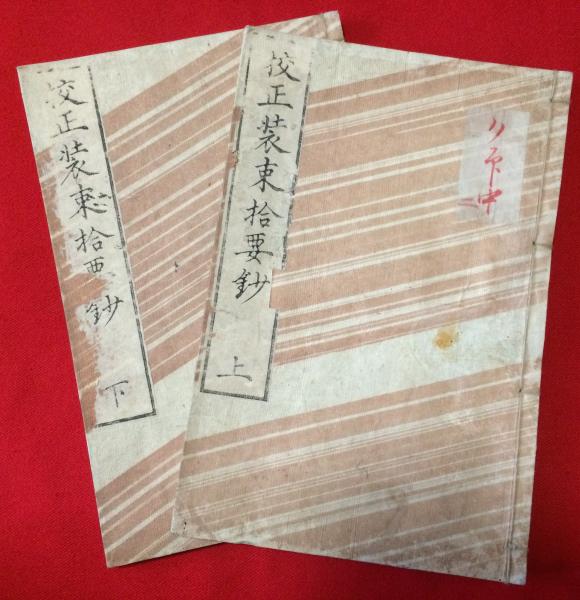 校正装束拾要鈔
上
校正装束拾要鈔
下